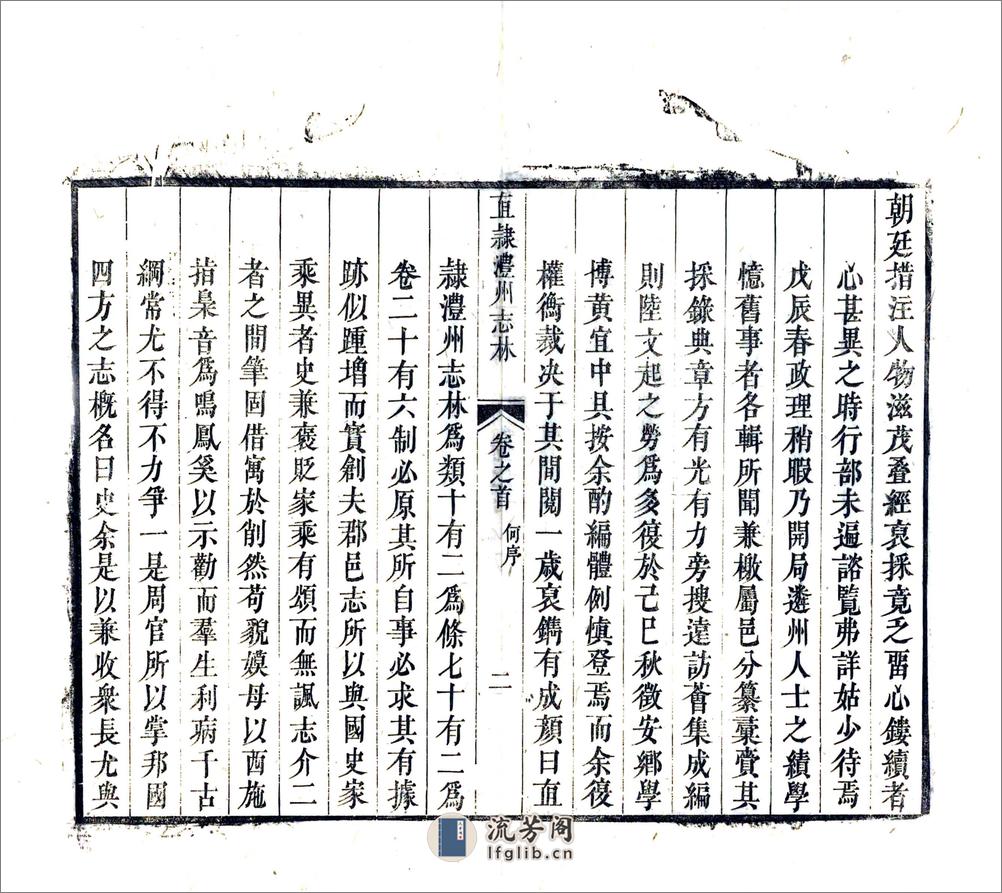 朝廷措注人物滋茂叠經裒採竟乏畱心鏤續者
心甚異之時行部未遍諮覽弗詳姑少待焉
戊辰春政理稍暇乃開局遴州人士之績學
憶舊事者各輯所聞兼檄屬邑分纂彙賫其
採錄典章方有光有力旁搜遠訪薈集成編
則陸文起之勞爲多復於己巳秋徵安鄉學
博黃宜中具按余酌編體例慎登焉而余復
權衡裁決于其間閱一歲裒鐫有成顏曰直
直隸澧州志林
卷之首
何序
二
隸澧州志林爲類十有二爲條七十有二爲
卷二十有六制必原其所自事必求其有據
跡似踵增而實創夫郡邑志所以與國史家
乘異者史兼褒貶家乘有頌而無諷志介二
者之間筆固借寓於削然苟貌嫫母以西施
指梟音爲鳴鳳奚以示勸而羣生利病千古
綱常尤不得不力爭一是周官所以掌邦國
四方之志概名曰史余是以兼收衆長尤與
流芳阁
lfglib.cn